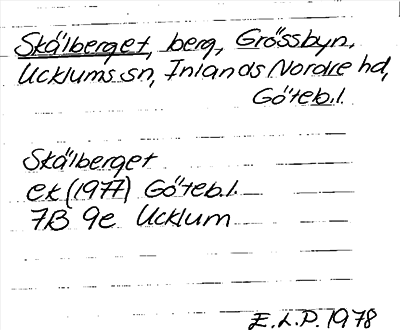 Skälberget, berg, Grössbyn,
Ucklums sn, Inlands Nordre hd,
Göteb.l.
Skälberget
ek (1977) Göteb.l.
7B 9e Ucklum
E.L.P. 1978